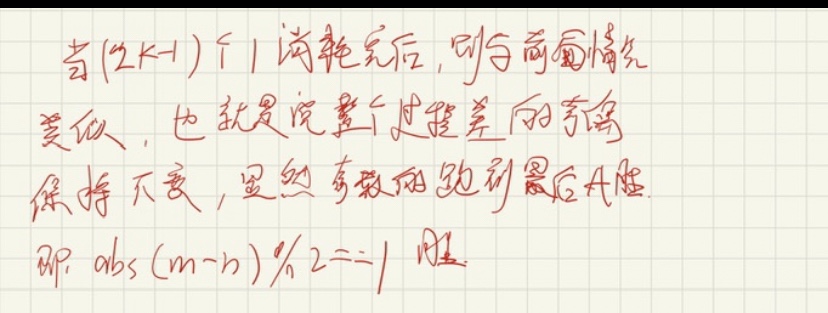 当(2K-1)个1消耗完后,则与前面情况
类似,也就是说整个过程差的奇偶
保持不变,显然奇数的跑到最后A胜.
即. abs(m-n)%2==1 胜.